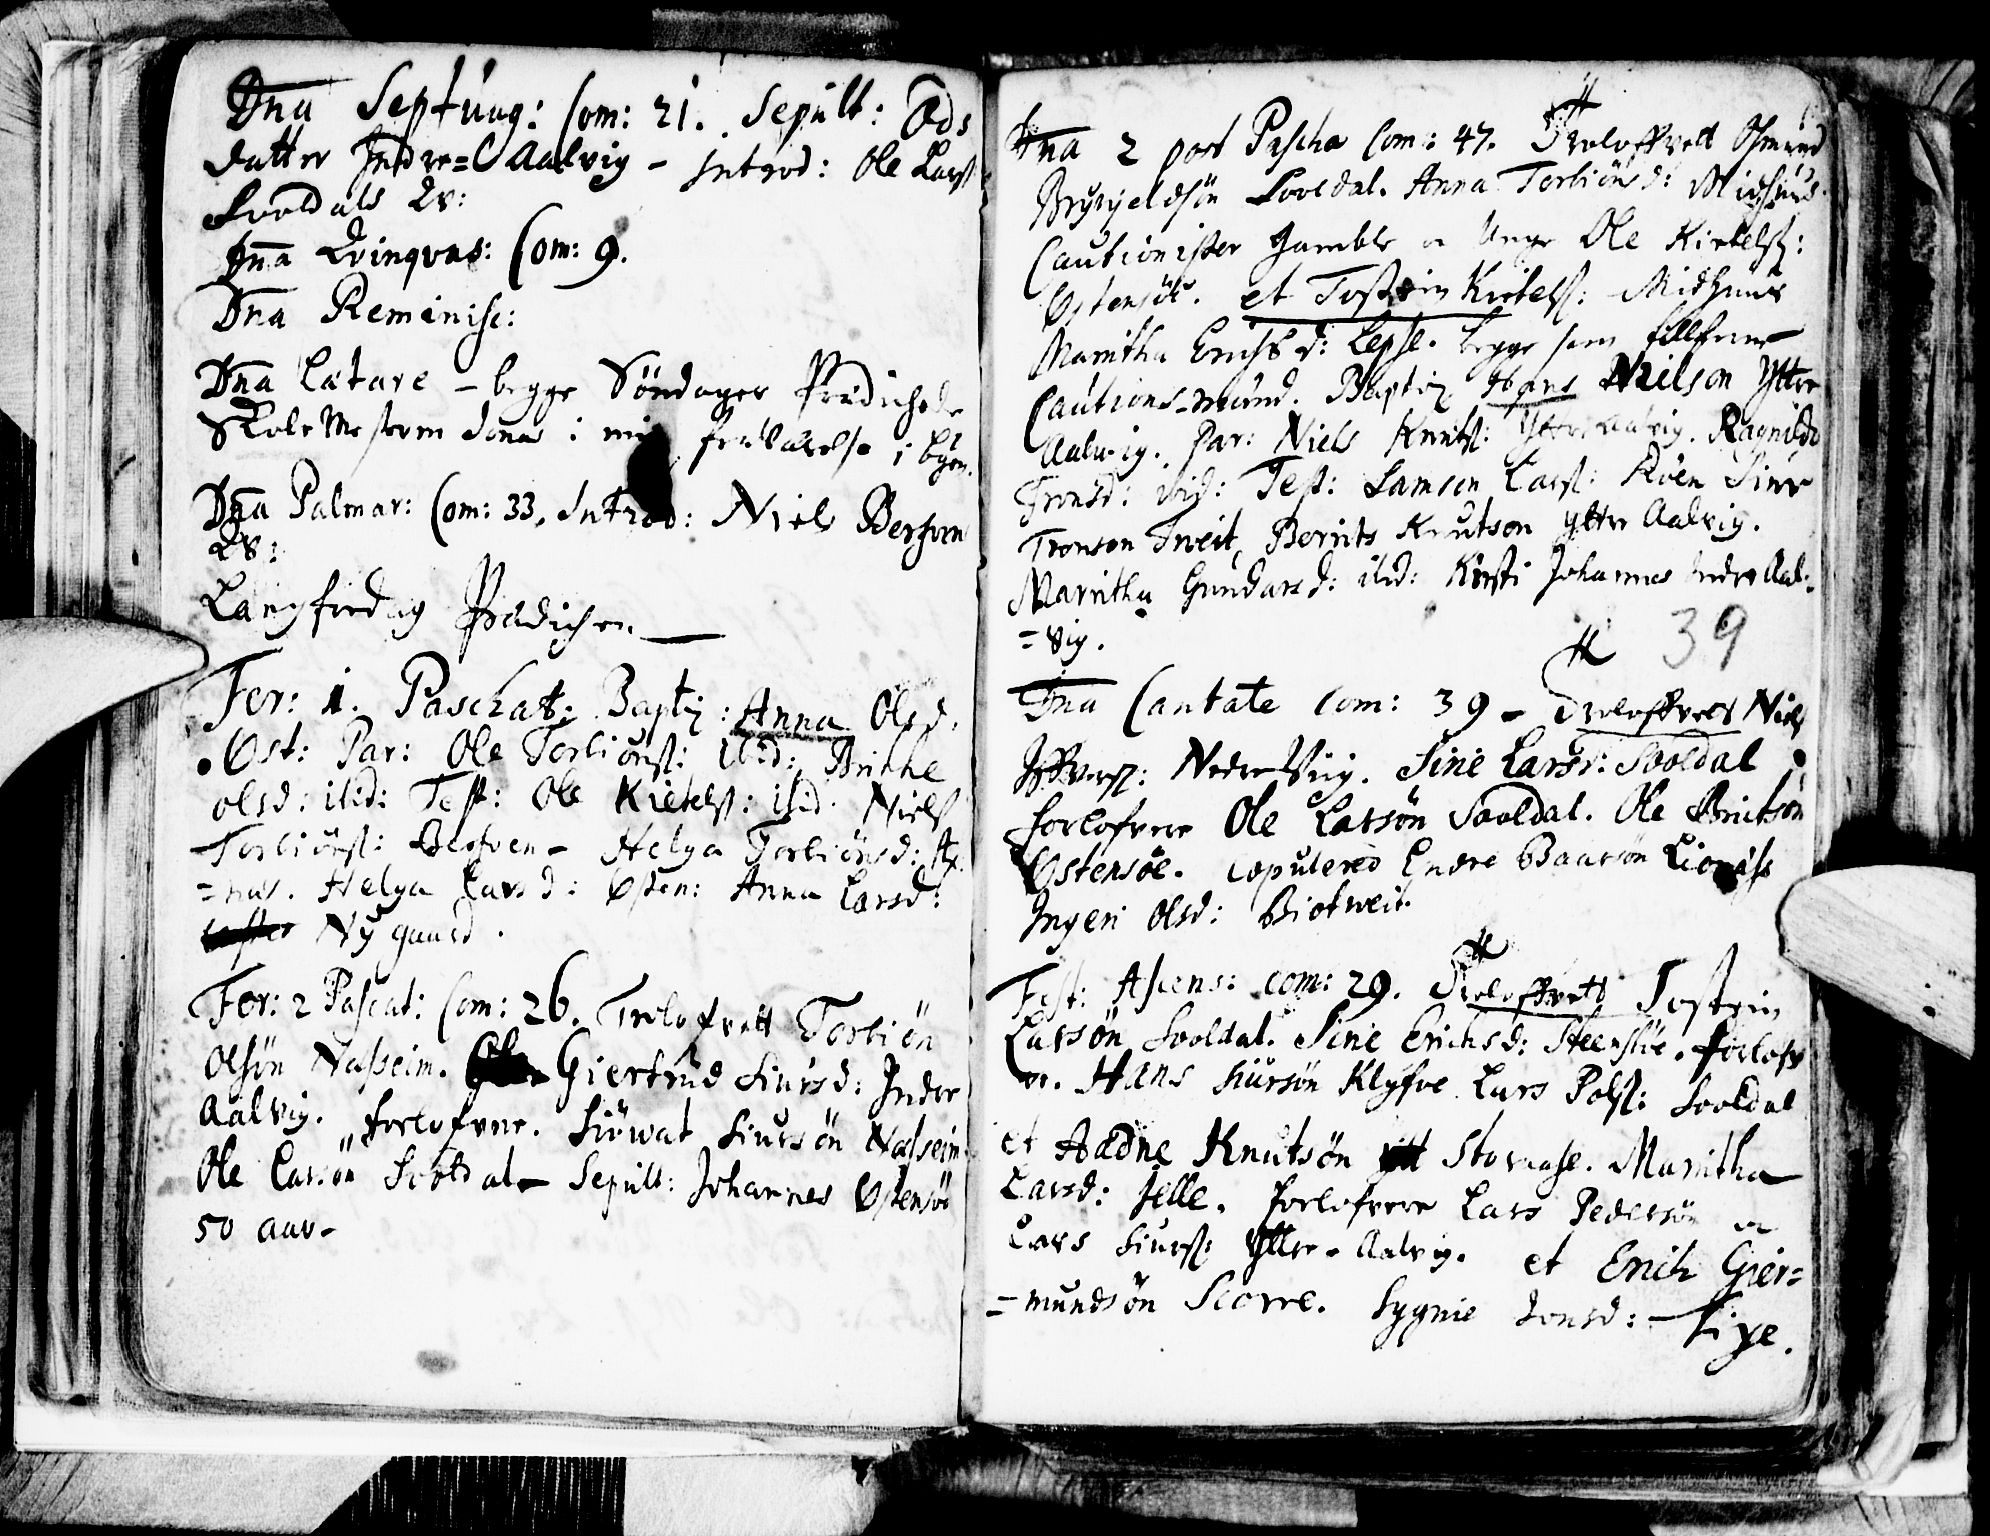 Dna Septuag: Com: 21. Sepult: Ods
datter Indre=Aalvig - Introd: Ole Lars
Sooldals Qv:
Dna Qvinqvas: Com: 9.
Dna Reminisc:
Dna Lætare - begge Söndager Prædichede
SkoleMesteren i min fraværelse i byen.
Dna Palmar: Com: 33. Introd: Niels Berfven
Qv:
Langfredag Prædichen
Fer: 1. Paschat: Baptiz: Anna Olsd.
Øst: Par: Ole Torbiönß: ibid: Brithe
olsd: ibid: Test: Ole Kietelß: ibid. Niels
Torbiönß: Berfven - Helga Torbiönsd:
=nus. Helga Larsd: Østen: Anna Larsd:
Nÿgaard.
Fer: 2 Pascat: Com: 26. Trolofvett Torbiön
Olsön Naßeim. Giertrud Siursd: Indre
Aalvig. forlofvere. Siöwat Siursön Naßeim
Ole Larsön Sooldal - Sepult: Johannes Østensöe
50 aar -
Dna 2 post Pascha Com: 47. Troloffvett Osmund
Brynjeldsön Sooldal. Anna Torbiönsd: Midhuus.
Cautionister Gamble oc Unge Ole Kietelß:
Østensöe. et Tostein Kietelß: Midhuus
Maritha Erichsd: Lepse. begge sam
Cautions-mænd. Baptiz. Hans Nielson Ytre
Aalvig. Par: Niels Knutß: Ytre Aalvig. Ragnilde
Tronsd: ibid: Test: Samson Larß: Röen Siur
Tronson Tveit, Berrits Knutson Ytre Aalvig.
Maritha Gundarsd: ibid: Kirsti Johannes Indre Aal:
=vig.
39
Dna Cantate Com: 39 - Troloffvett Niels
Nedre Viig. Sine Larsd: Sooldal
forlofvere Ole Larsön Sooldal. Ole Britsön
Østensöe. Copulered Endre Baarsön
Ingeri Olsd: Biotweit.
Fest: Ascens: Com: 29. Troloffvett Tostein
Larsön Sooldal. Sine Erichsd: Steenstöe. forlofv
er. Hans Siursön Klyfve Lars Polß: Sooldal
et Aadne Knutsön Storaase. Maritha
Larsd: Jelle. forlofvere Lars Pedersön oc
Lars Siurß: Yttre-Aalvig. et Erich Gier=
=mundsön Scorre. Sygnie Jonsd: - Fixe.